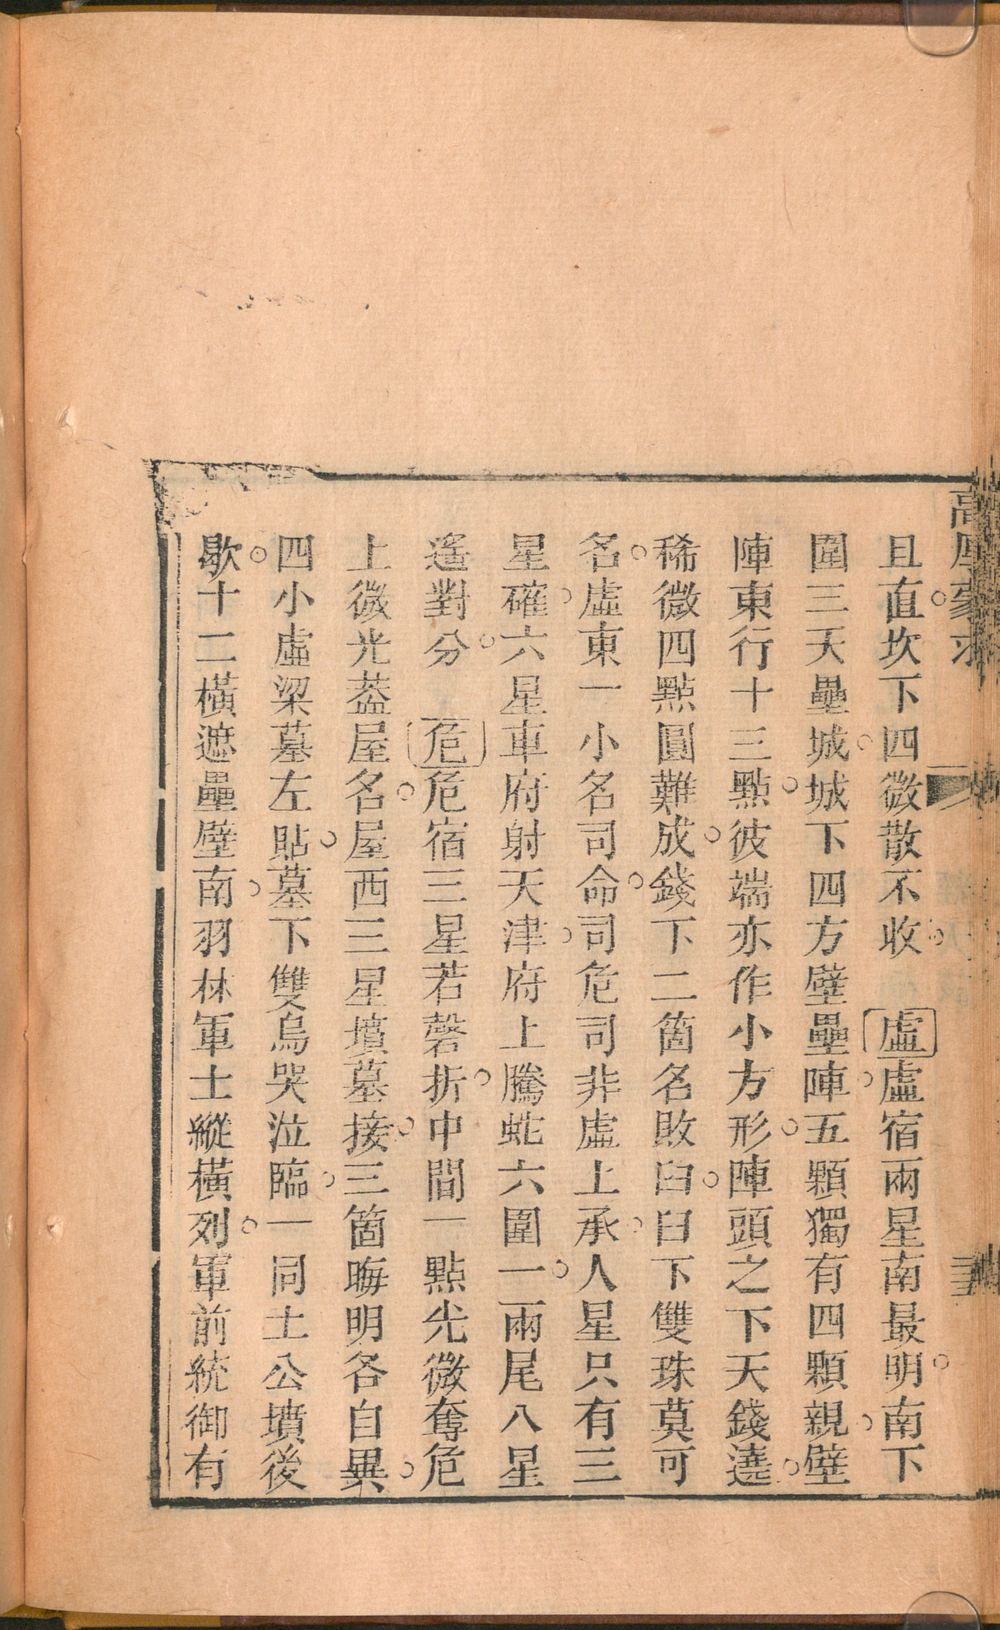 高厚蒙求
且直坎下四微散不收　虛虛宿兩星南最明南下
圍三天壘城城下四方壁壘陣五顆獨有四顆親壁
陣東行十三點彼端亦作小方形陣頭之下天錢遶
稀微四點圓難成錢下二箇名敗臼臼下雙珠莫可
名虛東一小名司命司危司非虛上承人星只有三
星確六星車府射天津府上騰蛇六圍一兩尾八星
遙對分　危危宿三星若磬折中間一點光微奪危
上微光葢屋名屋西三星墳墓接三箇晦明各自異
四小虛梁墓左貼墓下雙烏哭泣臨一同土公墳後
歇十二橫遮壘壁南羽林軍士縱橫列軍前統御有